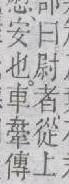 部曰尉者從上
安也。車舝傳